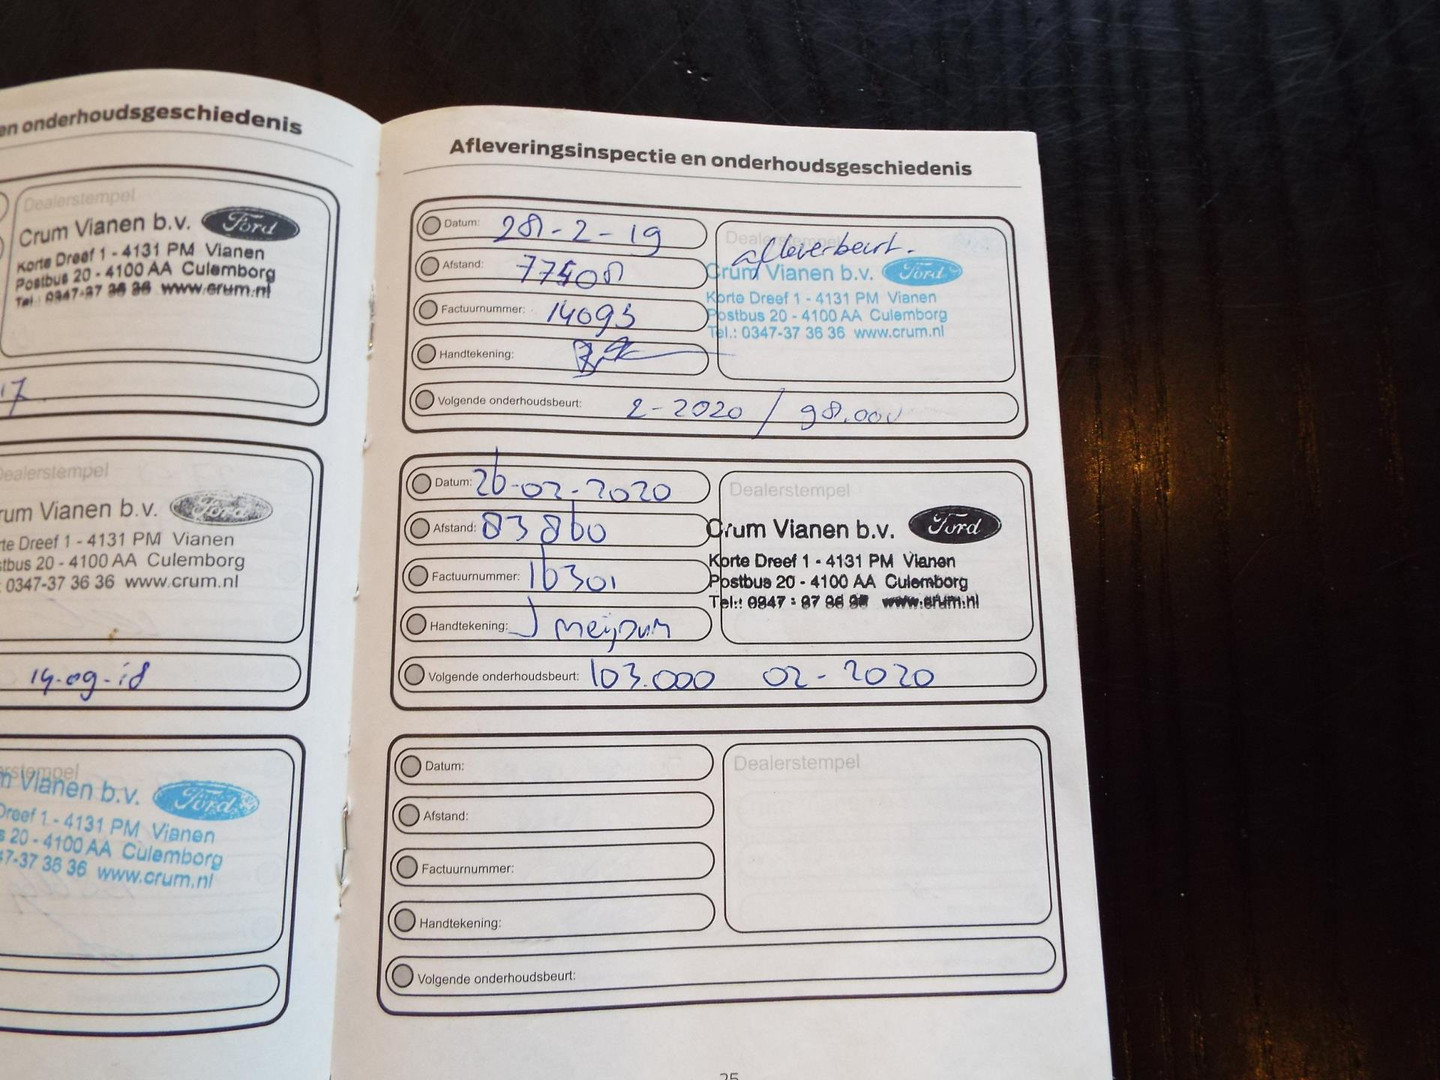 en onderhoudsgeschiedenis
Dealerstempel
Crum Vianen b.v. Ford
Korte Dreef 1 - 4131 PM Vianen
Postbus 20 - 4100 AA Culemborg
Tel.: 0347-37 36 36 www.crum.nl
17
Dealerstempel
rum Vianen b.v. Ford
te Dreef 1 - 4131 PM Vianen
stbus 20 - 4100 AA Culemborg
0347-37 36 36 www.crum.nl
14-09-18
rstempel
m Vianen b.v. Ford
Dreef 1 - 4131 PM Vianen
s 20 - 4100 AA Culemborg
47-37 36 36 www.crum.nl
Afleveringsinspectie en onderhoudsgeschiedenis
Datum: 28-2-19
Afstand: 77408
Factuurnummer: 14095
Handtekening:
Dealerstempel
afleverbeurt.
Crum Vianen b.v. Ford
Korte Dreef 1 - 4131 PM Vianen
Postbus 20 - 4100 AA Culemborg
Tel.: 0347-37 36 36 www.crum.nl
Volgende onderhoudsbeurt: 2-2020 / 98.000
Datum: 26-02-2020
Afstand: 83860
Factuurnummer: 16301
Handtekening: J
Dealerstempel
Crum Vianen b.v. Ford
Korte Dreef 1 - 4131 PM Vianen
Postbus 20 - 4100 AA Culemborg
Tel.: 0347-37 36 36 www.crum.nl
Volgende onderhoudsbeurt: 103.000 02-2020
Datum:
Afstand:
Factuurnummer:
Handtekening:
Dealerstempel
Volgende onderhoudsbeurt:
25